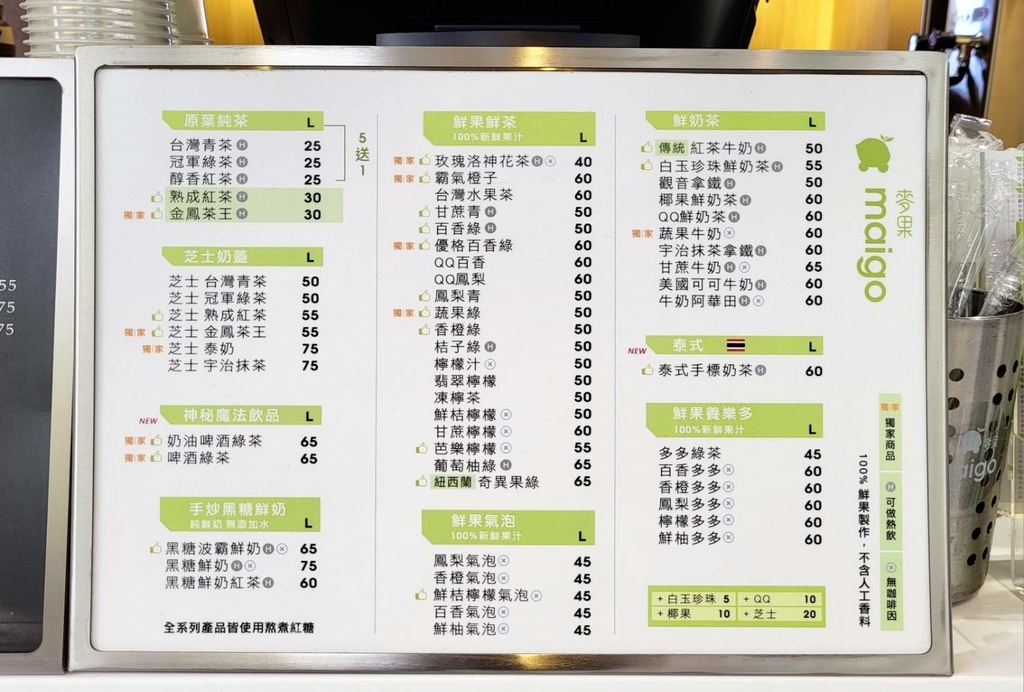 原葉純茶 L
台灣青茶 H 25
冠軍綠茶 H 25
醇香紅茶 H 25
熟成紅茶 H 30
獨家 金鳳茶王 H 30
5送1
芝士奶蓋 L
芝士 台灣青茶 50
芝士 冠軍綠茶 50
芝士 熟成紅茶 55
獨家 芝士 金鳳茶王 55
獨家 芝士 泰奶 75
芝士 宇治抹茶 75
NEW 神秘魔法飲品 L
獨家 奶油啤酒綠茶 65
獨家 啤酒綠茶 65
手炒黑糖鮮奶
純鮮奶 無添加水 L
黑糖波霸鮮奶 H × 65
黑糖鮮奶 H × 75
黑糖鮮奶紅茶 H 60
全系列產品皆使用熬煮紅糖
鮮果鮮茶
100%新鮮果汁 L
獨家 玫瑰洛神花茶 H × 40
獨家 霸氣橙子 60
台灣水果茶 60
甘蔗青 H 50
百香綠 H 50
獨家 優格百香綠 60
QQ百香 60
QQ鳳梨 60
鳳梨青 50
獨家 蔬果綠 50
香橙綠 50
桔子綠 H 50
檸檬汁 × 50
翡翠檸檬 50
凍檸茶 50
鮮桔檸檬 × 50
甘蔗檸檬 × 60
芭樂檸檬 × 55
葡萄柚綠 H 65
紐西蘭 奇異果綠 65
鮮果氣泡
100%新鮮果汁 L
鳳梨氣泡 × 45
香橙氣泡 × 45
鮮桔檸檬氣泡 × 45
百香氣泡 × 45
鮮柚氣泡 × 45
鮮奶茶 L
傳統 紅茶牛奶 H 50
白玉珍珠鮮奶茶 H 55
觀音拿鐵 H 50
椰果鮮奶茶 H 60
QQ鮮奶茶 H 60
獨家 蔬果牛奶 × 60
宇治抹茶拿鐵 H 60
甘蔗牛奶 H × 65
美國可可牛奶 H 60
牛奶阿華田 H × 60
NEW 泰式 L
泰式手標奶茶 H 60
鮮果養樂多
100%新鮮果汁 L
多多綠茶 45
百香多多 × 60
香橙多多 × 60
鳳梨多多 × 60
檸檬多多 × 60
鮮柚多多 × 60
+ 白玉珍珠 5 + QQ 10
+ 椰果 10 + 芝士 20
麥果
maigo
獨家 獨家商品
H 可做熱飲
× 無咖啡因
100% 鮮果製作，不含人工香料
55
75
75